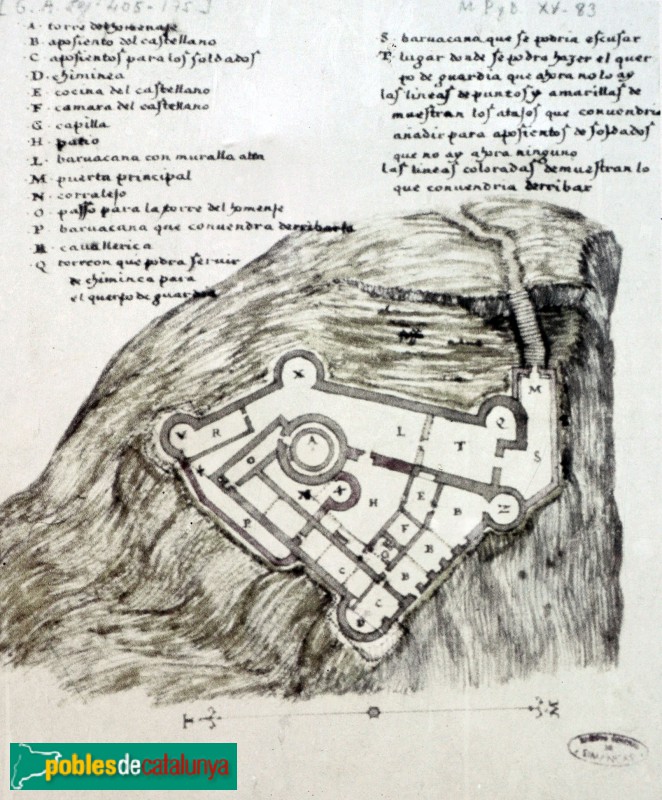 [G. A. Leg. 405-175]
M. P. y D. XV-83
A. torre del homenaje
B. aposiento del castellano
C. aposientos para los soldados
D. chiminea
E. cocina del castellano
F. camara del castellano
G. capilla
H. patio
L. baruacana con muralla alta
M. puerta principal
N. corralejo
O. passo para la torre del homenje
P. baruacana que convendra derribarla
R. cavallerica
Q. torreon que podra servir
de chiminea para
el querpo de guardia
S. baruacana que se podria escusar
T. lugar donde se podra hazer el quer
po de guardia que ahora no lo ay
las lineas de puntos y amarillas de
muestran los atajos que convendria
añadir para aposientos de soldados
que no ay ahora ninguno
las lineas coloradas demuestran lo
que convendria derribar
M
X
Q
V
R
A
L
T
S
O
H
E
B
Z
F
P
B
C
B
C
T
M
poblesdecatalunya